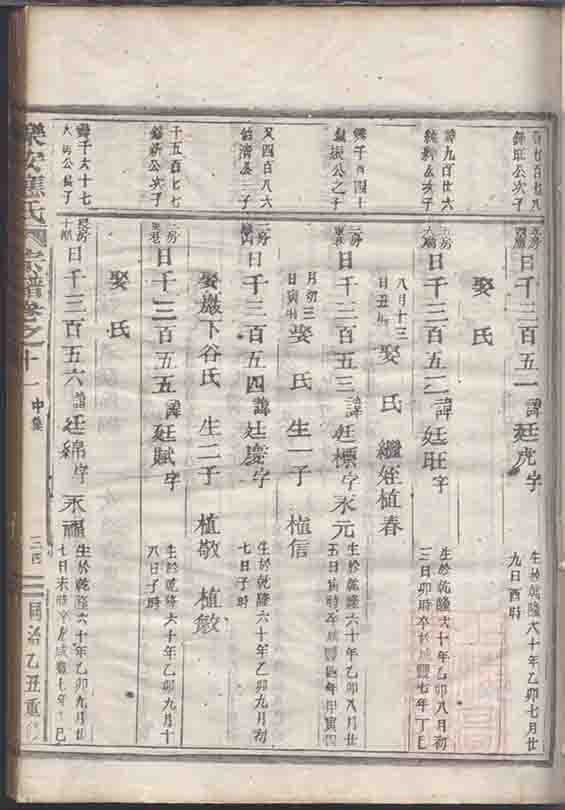 公次子
日千三百五一諱廷虎字
生於乾隆六十年乙卯七月廿
九日酉時
娶氏
諱九百廿六
公次子
日千三百五二諱廷旺字
生於乾隆六十年乙卯八月初
三日卯時卒於咸豐七年丁巳
八月十三
日丑時
娶氏 繼姪植春
公之子
日千三百五三諱廷標字永元
生於乾隆六十年乙卯八月廿
五日 時卒咸豐四年甲寅四
月初三
日寅時
娶氏 生一子 植信
又四百八六
公三子
二房
日千三百五四諱廷慶字
生於乾隆六十年乙卯九月初
七日子時
娶巖下谷氏 生二子 植敬 植敏
千五百七七
公次子
二房
日千三百五五諱廷賦字
生於乾隆六十年乙卯九月十
八日子時
娶氏
諱千六十七
公長子
長房
日千三百五六諱廷綿字永福
生於乾隆六十年乙卯九月廿
七日未時卒咸豐七年丁巳
樂安應氏宗譜卷之十一 中集
三四
同治乙丑重